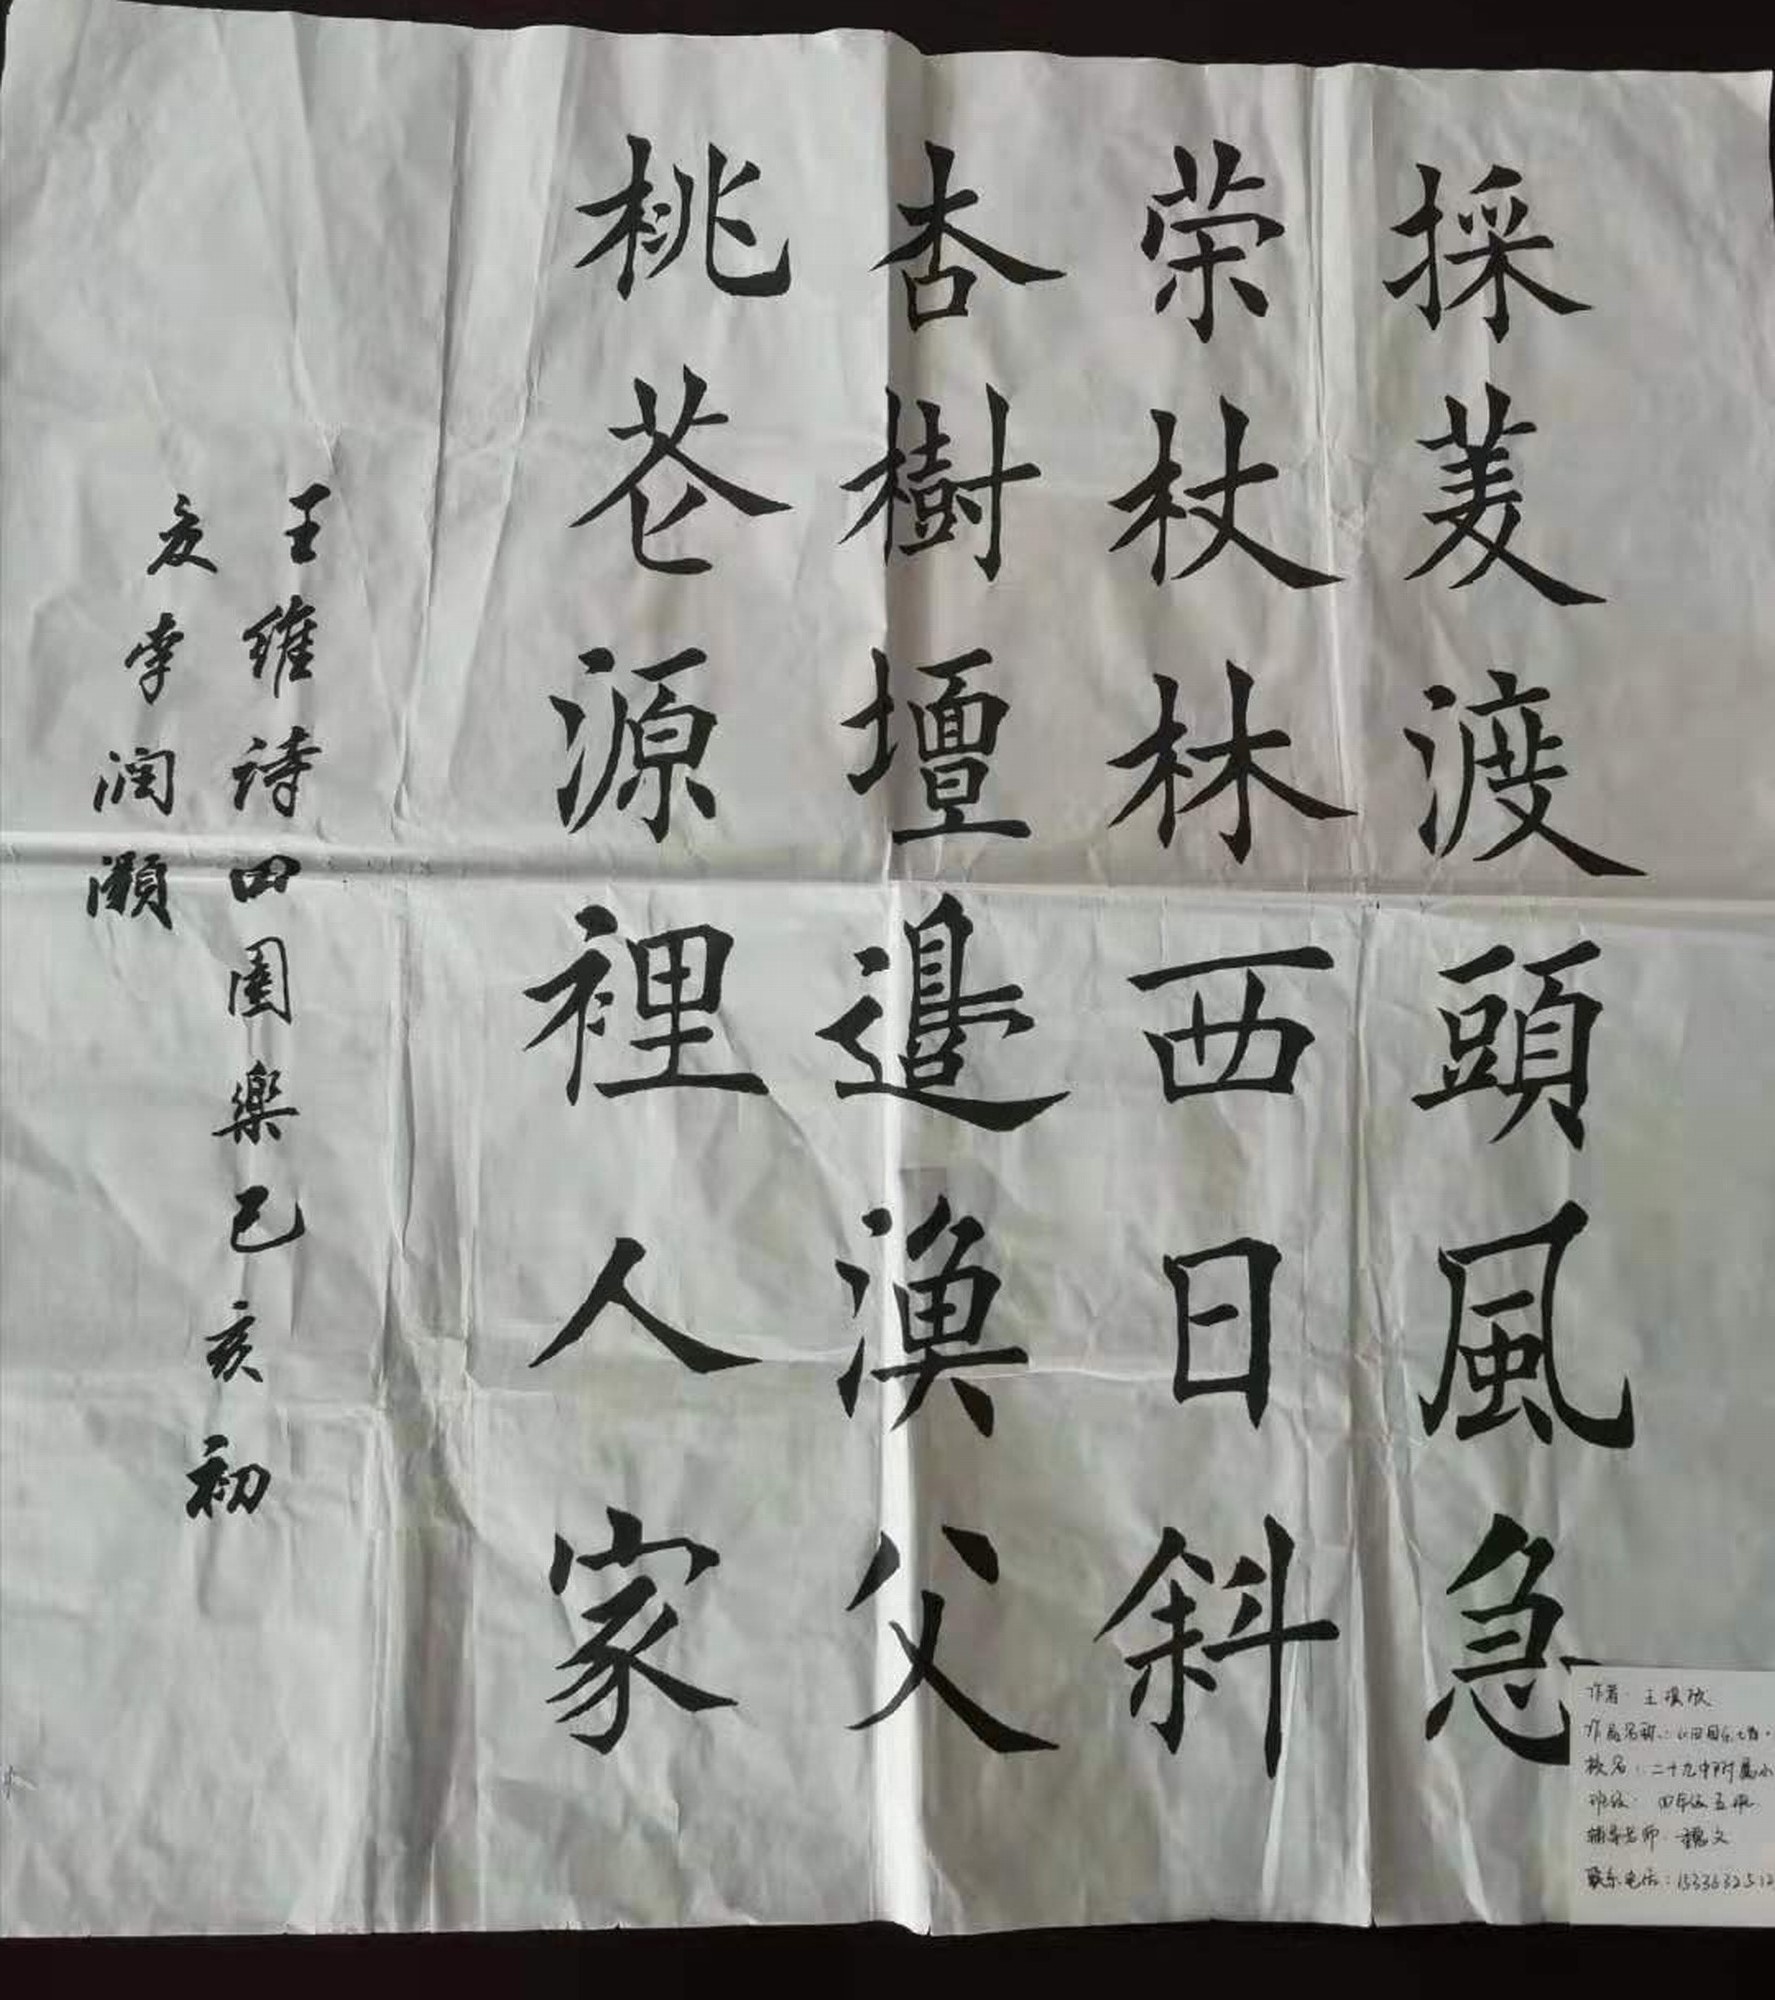 採菱渡頭風急
荣杖林西日斜
杏樹壇邊漁父
桃花源裡人家
王維诗田園樂己亥初
夏李润灝
作者：王
作品名称：《田园乐七首·
校名：二十九中附属小
班级：四年级五班
辅导老师：魏文
联系电话：1533632512